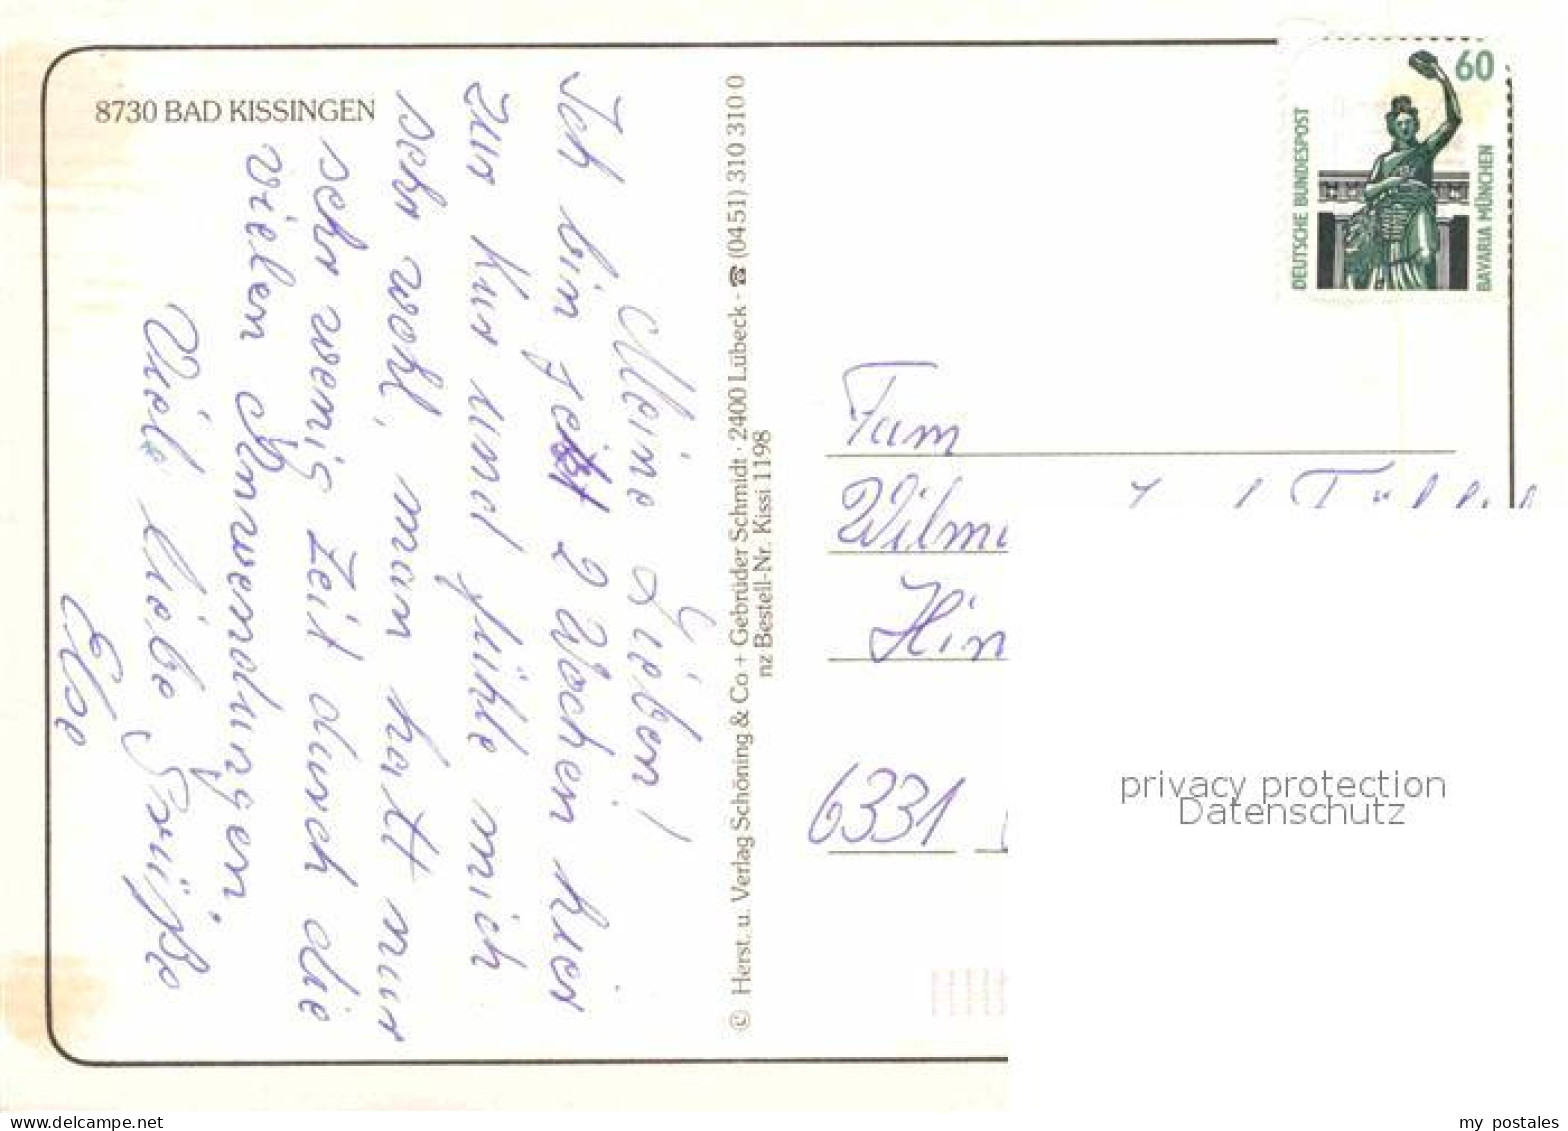 8730 BAD KISSINGEN
Meine Lieben!
Ich bin jetzt 2 Wochen hier
zur Kur und fühle mich
sehr wohl, man hatt nur
sehr wenig Zeit durch die
vielen Anwendungen.
Viel liebe Grüße
Else
© Herst. u. Verlag Schöning & Co + Gebrüder Schmidt · 2400 Lübeck · ☎ (0451) 310 310 0
nz Bestell-Nr. Kissi 1198
60
DEUTSCHE BUNDESPOST
BAVARIA MÜNCHEN
Fam
Wilm
Hin
6331
privacy protection
Datenschutz
my postales